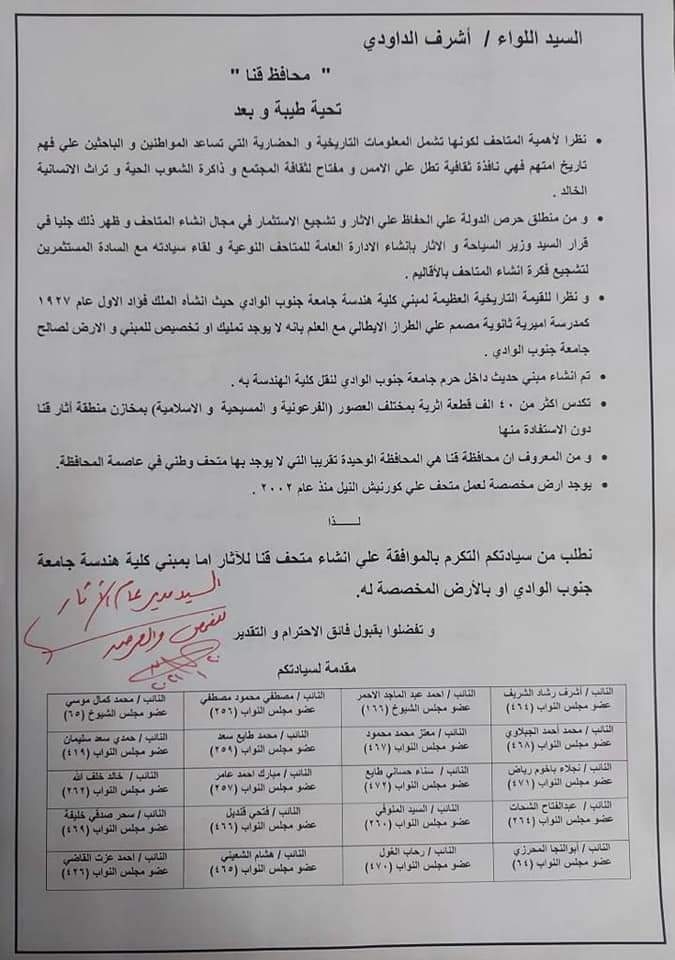 السيد اللواء / أشرف الداودي
" محافظ قنا "
تحية طيبة و بعد
• نظرا لأهمية المتاحف لكونها تشمل المعلومات التاريخية و الحضارية التي تساعد المواطنين و الباحثين علي فهم
تاريخ امتهم فهي نافذة ثقافية تطل علي الامس و مفتاح لثقافة المجتمع و ذاكرة الشعوب الحية و تراث الانسانية
الخالد .
• و من منطلق حرص الدولة علي الحفاظ علي الاثار و تشجيع الاستثمار في مجال انشاء المتاحف و ظهر ذلك جليا في
قرار السيد وزير السياحة و الاثار بإنشاء الادارة العامة للمتاحف النوعية و لقاء سيادته مع السادة المستثمرين
لتشجيع فكرة انشاء المتاحف بالأقاليم .
• و نظرا للقيمة التاريخية العظيمة لمبني كلية هندسة جامعة جنوب الوادي حيث انشأه الملك فؤاد الاول عام ١٩٢٧
كمدرسة اميرية ثانوية مصمم علي الطراز الايطالي مع العلم بانه لا يوجد تمليك او تخصيص للمبني و الارض لصالح
جامعة جنوب الوادي .
• تم انشاء مبني حديث داخل حرم جامعة جنوب الوادي لنقل كلية الهندسة به .
• تكدس اكثر من ٤٠ الف قطعة اثرية بمختلف العصور (الفرعونية و المسيحية و الاسلامية) بمخازن منطقة أثار قنا
دون الاستفادة منها
• و من المعروف ان محافظة قنا هي المحافظة الوحيدة تقريبا التي لا يوجد بها متحف وطني في عاصمة المحافظة.
• يوجد ارض مخصصة لعمل متحف علي كورنيش النيل منذ عام ٢٠٠٢ .
لـــــذا
نطلب من سيادتكم التكرم بالموافقة علي انشاء متحف قنا للآثار اما بمبني كلية هندسة جامعة
جنوب الوادي او بالأرض المخصصة له.
السيد مدير عام الآثار
و تفضلوا بقبول فائق الاحترام و التقدير
والعرض
مقدمة لسيادتكم
النائب / أشرف رشاد الشريف النائب / احمد عبد الماجد الاحمر النائب / مصطفي محمود مصطفي النائب / محمد كمال موسي
عضو مجلس النواب (٤٦٤) عضو مجلس الشيوخ (١٦٦) عضو مجلس النواب (٢٥٦) عضو مجلس الشيوخ (٦٥)
النائب / محمد أحمد الجبلاوي النائب / معتز محمد محمود النائب / محمد طايع سعد النائب / حمدي سعد سليمان
عضو مجلس النواب (٤٦٨) عضو مجلس النواب (٤٦٧) عضو مجلس النواب (٢٥٩) عضو مجلس النواب (٤١٩)
النائب / نجلاء باخوم رياض النائب / سناء حساني طايع النائب / مبارك احمد عامر النائب / خالد خلف الله
عضو مجلس النواب (٤٧١) عضو مجلس النواب (٤٧٢) عضو مجلس النواب (٢٥٧) عضو مجلس النواب (٢٦٢)
النائب / عبدالفتاح الشحات النائب / السيد المنوفي النائب / فتحي قنديل النائب / سحر صدقي خليفة
عضو مجلس النواب (٢٦٤) عضو مجلس النواب (٢٦٠) عضو مجلس النواب (٤٦٦) عضو مجلس النواب (٤٦٩)
النائب / أبوالنجا المحرزي النائب / رحاب الغول النائب / هشام الشعيني النائب / احمد عزت القاضي
عضو مجلس النواب (٦٤) عضو مجلس النواب (٤٧٠) عضو مجلس النواب (٤٦٥) عضو مجلس النواب (٤٢٦)